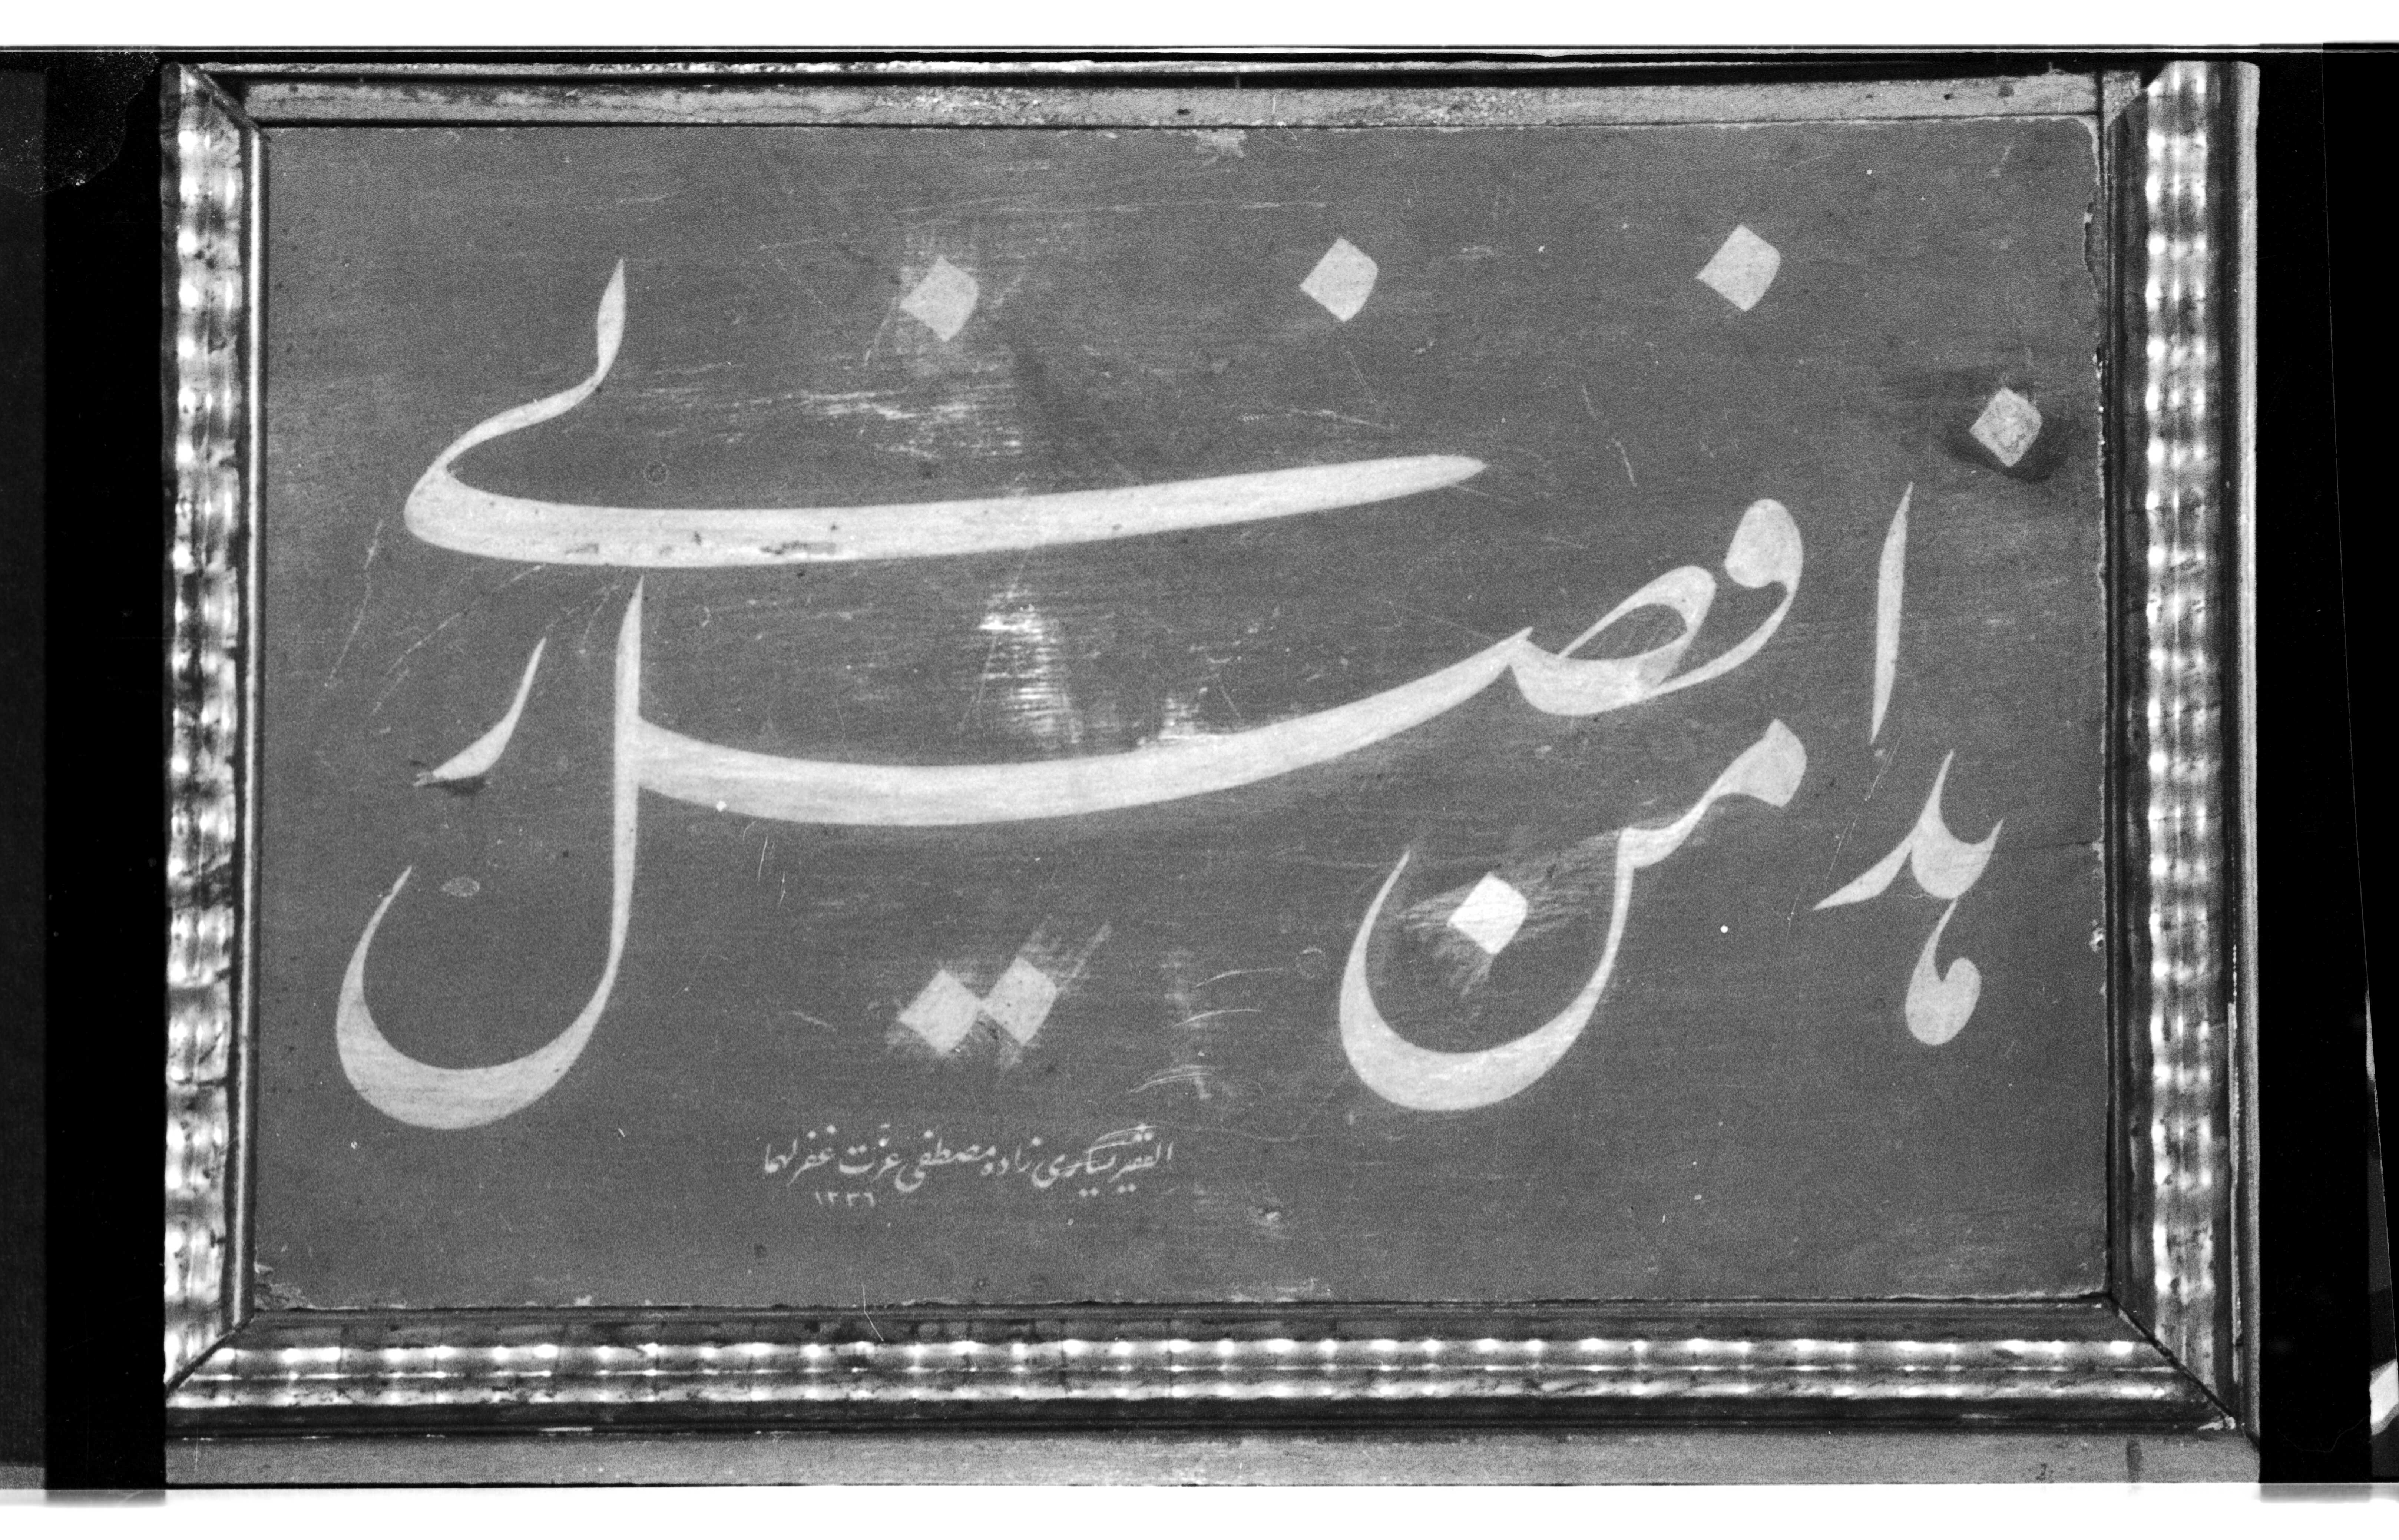 هذا من فضل ربي
الفقير زاده مصطفى عزت غفر لهما
١٣٣٦